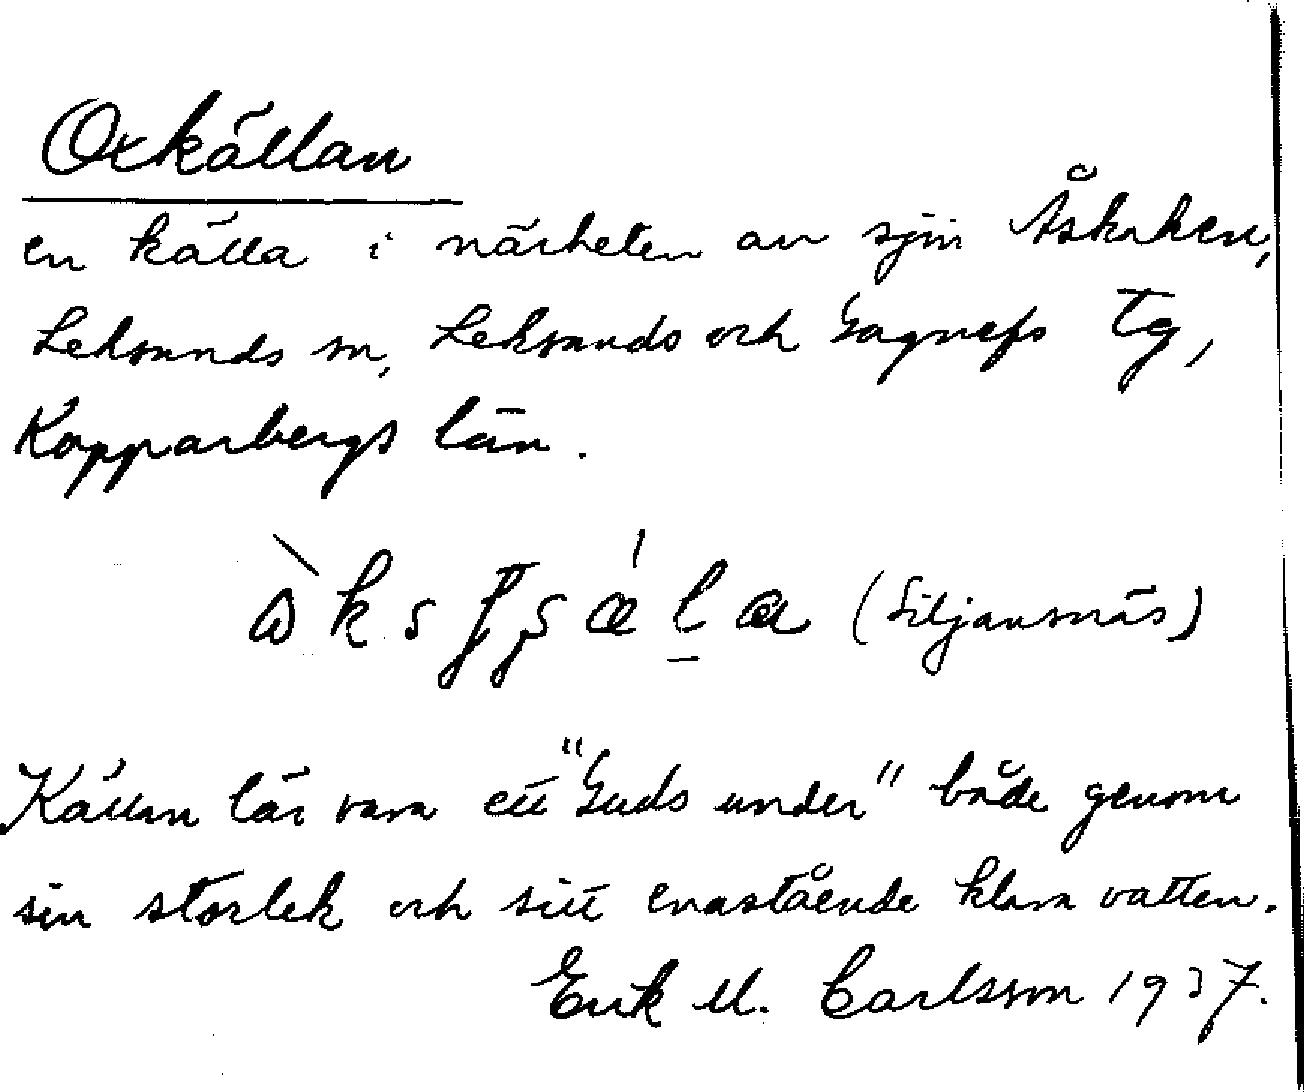 Oxkällan
en källa i närheten av sjön Åskaken,
Leksands sn, Leksands och Gagnefs tg,
Kopparbergs län.
(Siljansnäs)
Källan lär vara ett "Guds under" både genom
sin storlek och sitt enastående klara vatten.
Erik M. Carlsson 1937.